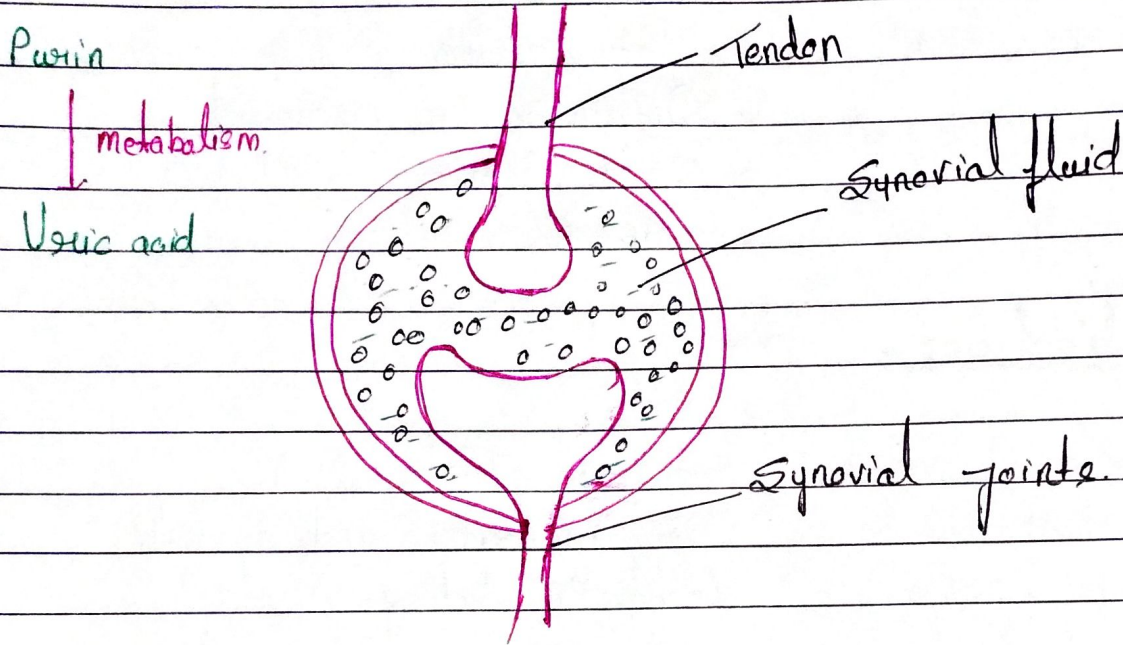 Purin
metabolism.
Uric acid
Tendon
Synovial fluid
Synovial joints.